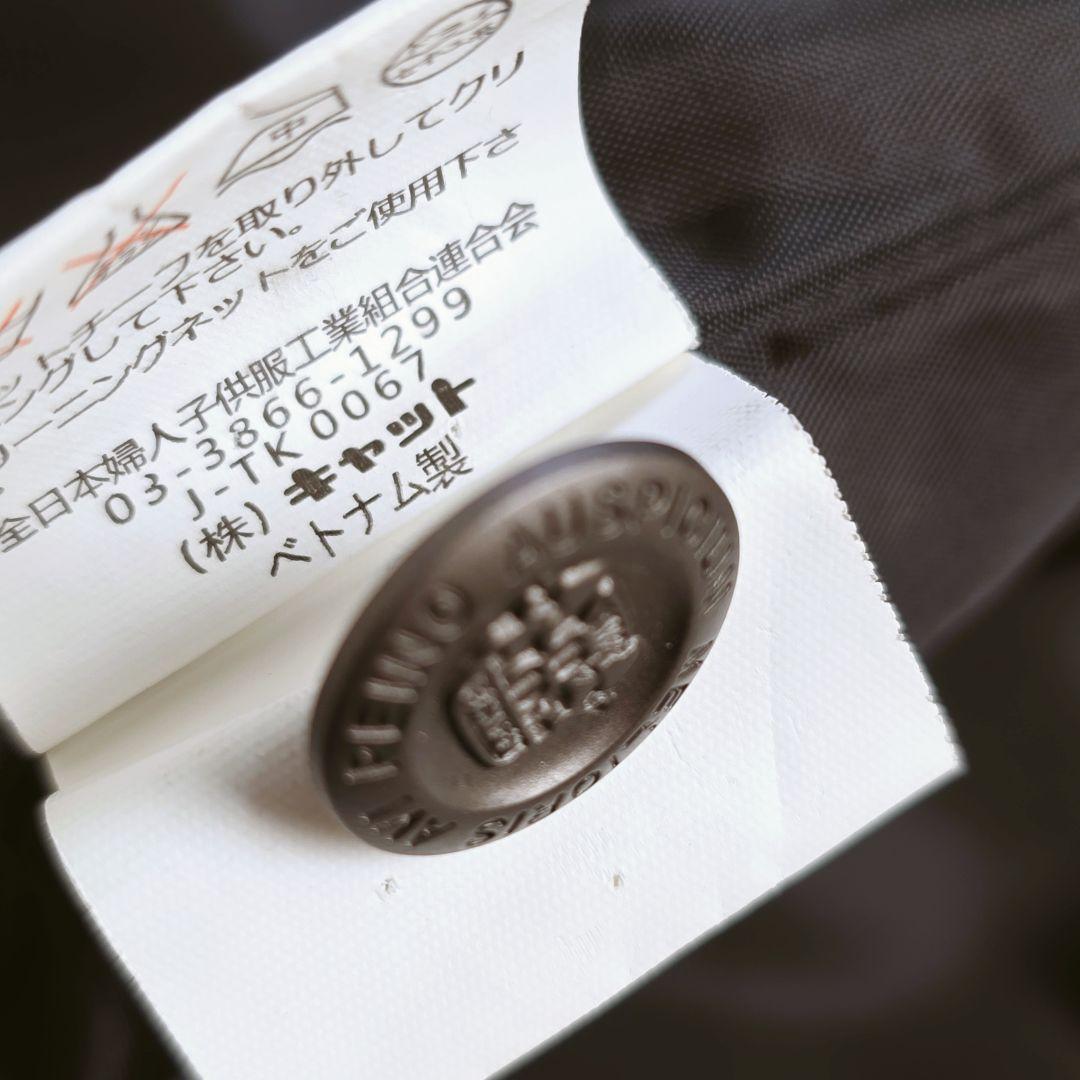 中
ットチーフを取り外してクリ
ングして下さい。
リーニングネットをご使用下さ
全日本婦人子供服工業組合連合会
03-3866-1299
J-TK 0067
(株)キャット
ベトナム製
AUSPICIUM